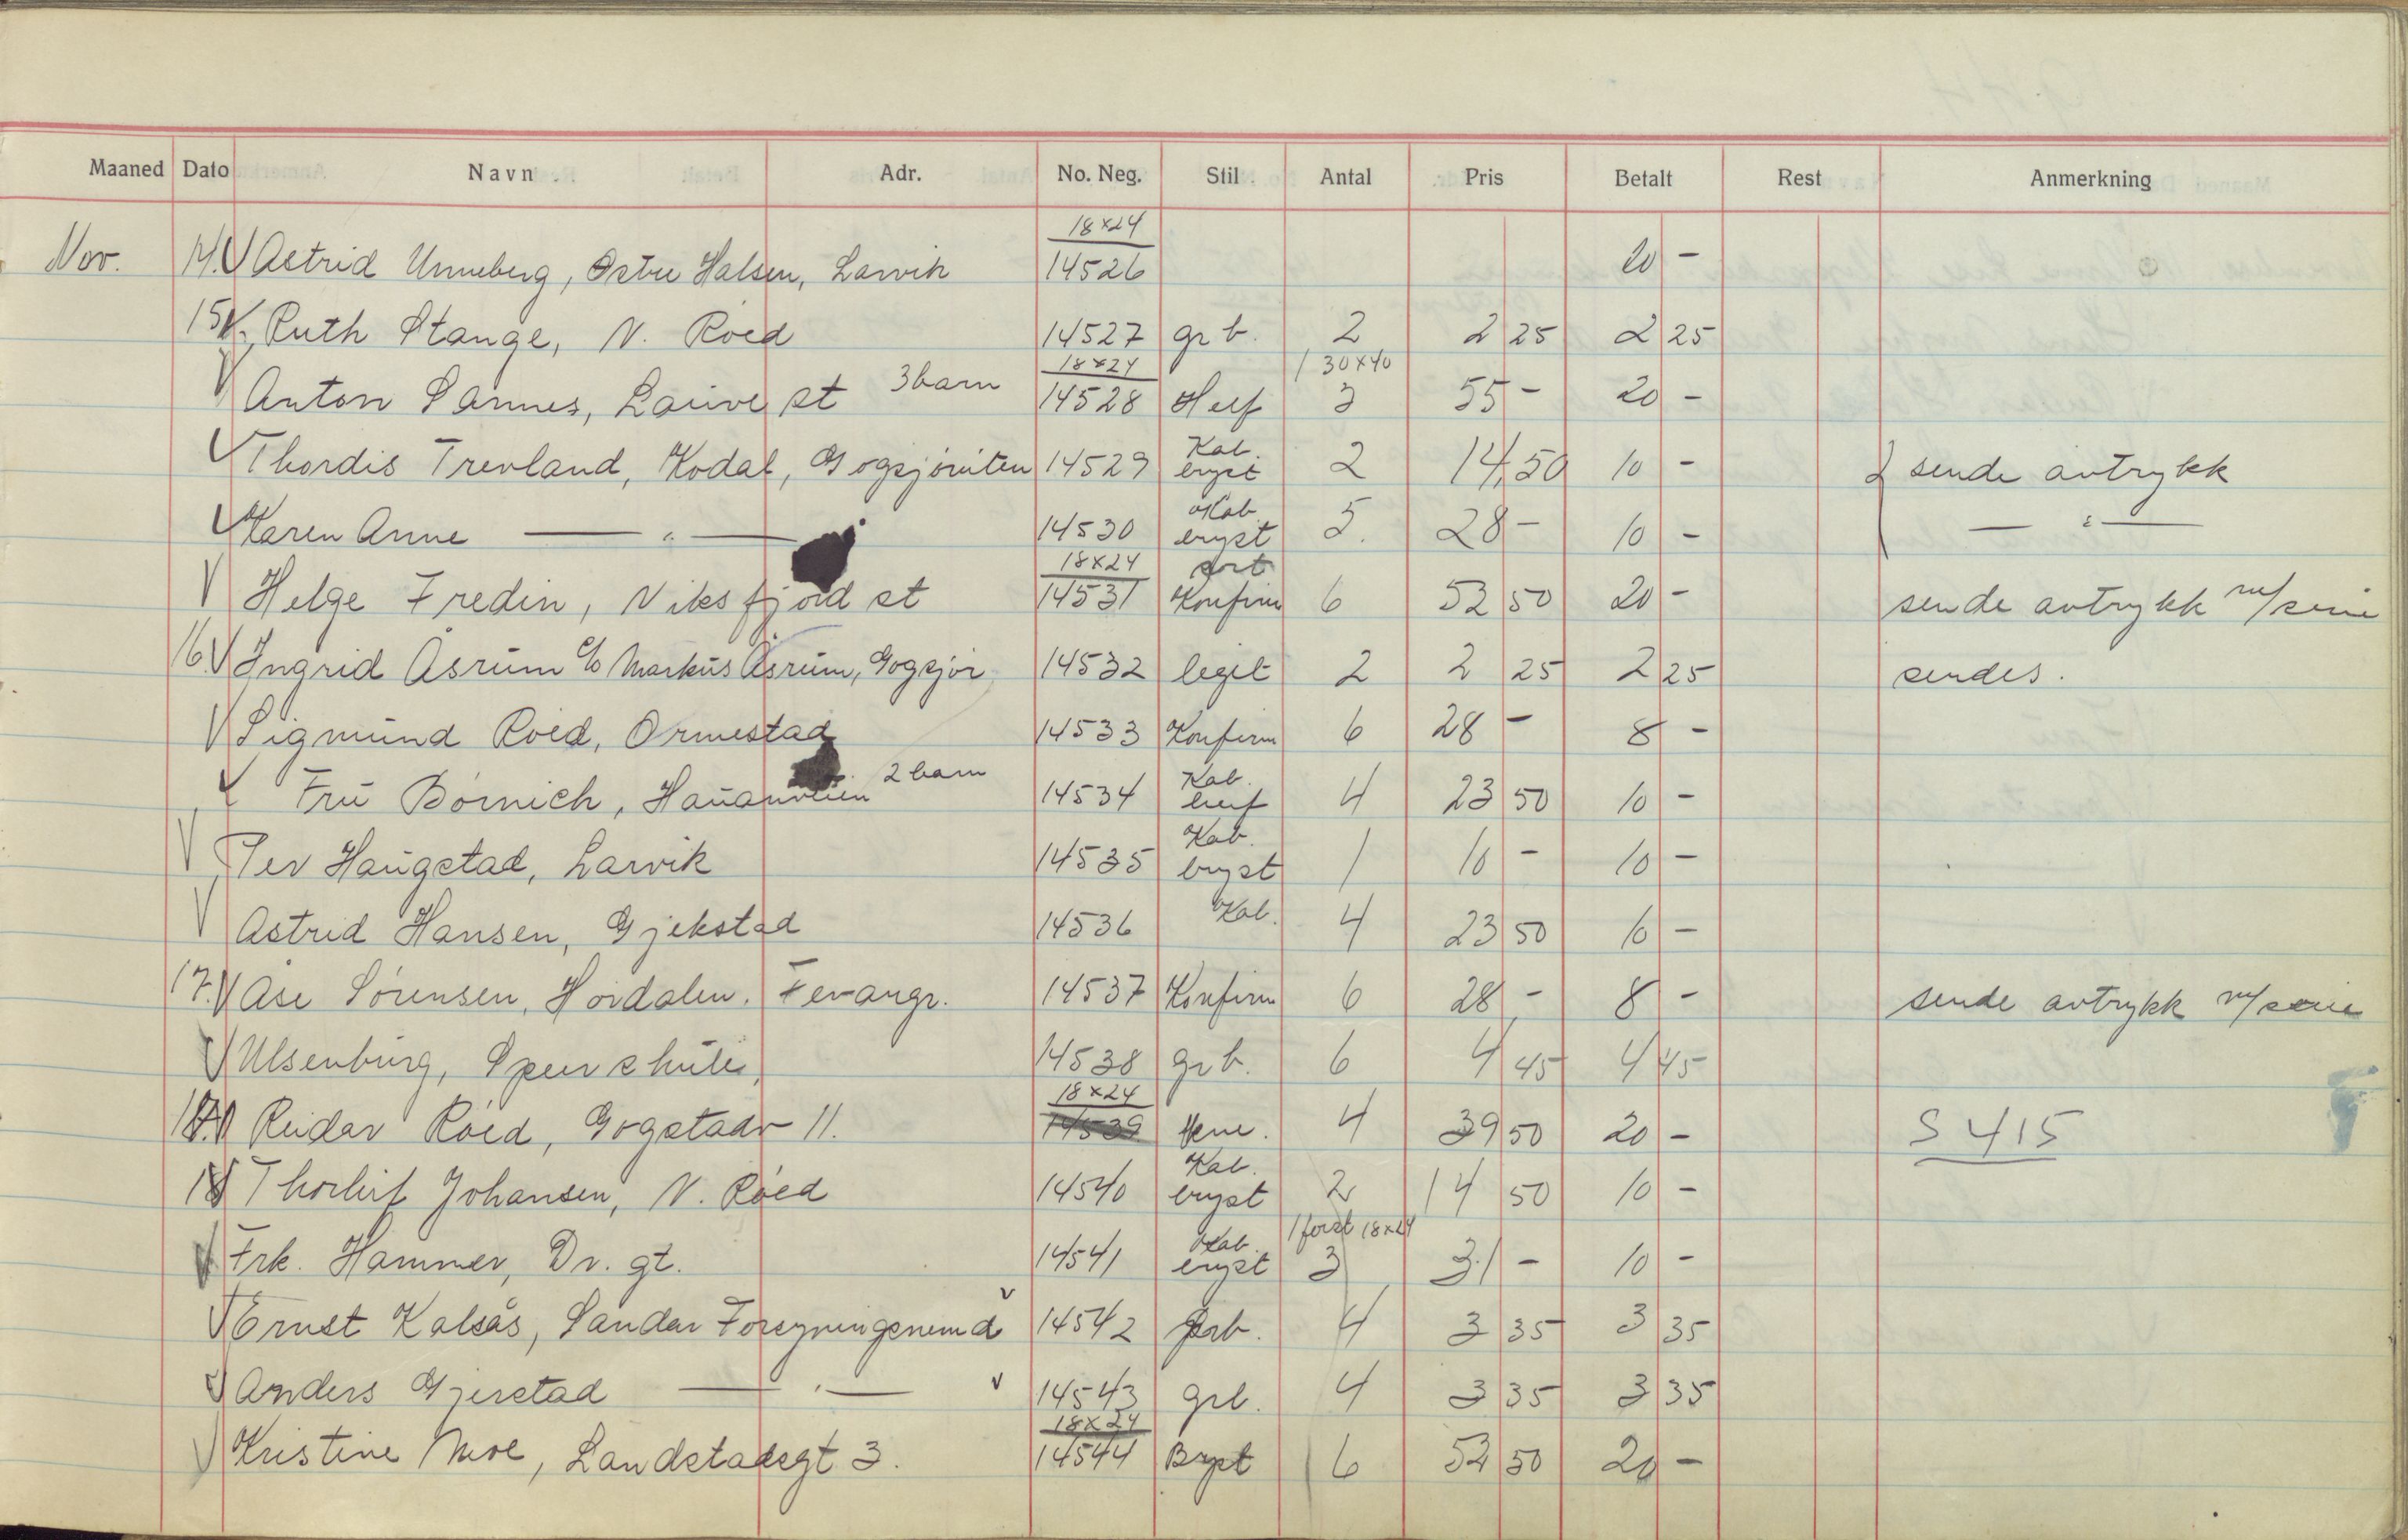 Maaned Dato Navn Adr. No. Neg. Stil Antal Pris Betalt Rest Anmerkning
18x24
Nov. 14. Astrid Unneberg, Østre Halsen, Larvik 14526 20 -
15. Ruth Stange, N. Röed 14527 gr b. 2 2 25 2 25
18x24 1 30x40
Anton Sannes, Lauve st 3 barn 14528 Helf 3 55 - 20 -
Kab.
Thordis Trevland, Kodal, Gogsjö 14529 bryst 2 14,50 10 - sende avtrykk
Kab
Karen Anne — " — 14530 bryst 5. 28 - 10 - — " —
18x24 sort
Helge Fredin, Viksfjord st 14531 Konfirm 6 52 50 20 - sende avtrykk m/serie
16. Ingrid Åsrum c/o Markus Åsrum, Gogsjör 14532 legit 2 2 25 2 25 sendes.
Sigmund Röed, Ormestad 14533 Konfirm 6 28 - 8 -
Kab.
Fru Börnich, Hauanveien 2 barn 14534 4 23 50 10 -
Kab.
Per Haugstad, Larvik 14535 bryst 1 10 - 10 -
Astrid Hansen, Gjekstad 14536 Kab. 4 23 50 10 -
17. Åse Sørensen, Høidalen. Tevangr. 14537 Konfirm 6 28 - 8 - sende avtrykk m/serie
Ulsenburg, 14538 gr b. 6 4 45 4 45
18x24
17. Reidar Röed, Gogstadv 11. 14539 4 39 50 20 - S 415
Kab.
18 Thorleif Johansen, N. Röed 14540 bryst 2 14 50 10 -
Kab. 1 forst 18x24
Frk. Hammer, Dr. gt. 14541 bryst 3 31 - 10 -
Ernst Kalsås, Sandar Forsyningsnemd 14542 grb. 4 3 35 3 35
Anders Gjerstad — " — 14543 grb. 4 3 35 3 35
18x24
Kristine Moe, Landstadsgt 3. 14544 Bryst 6 52 50 20 -